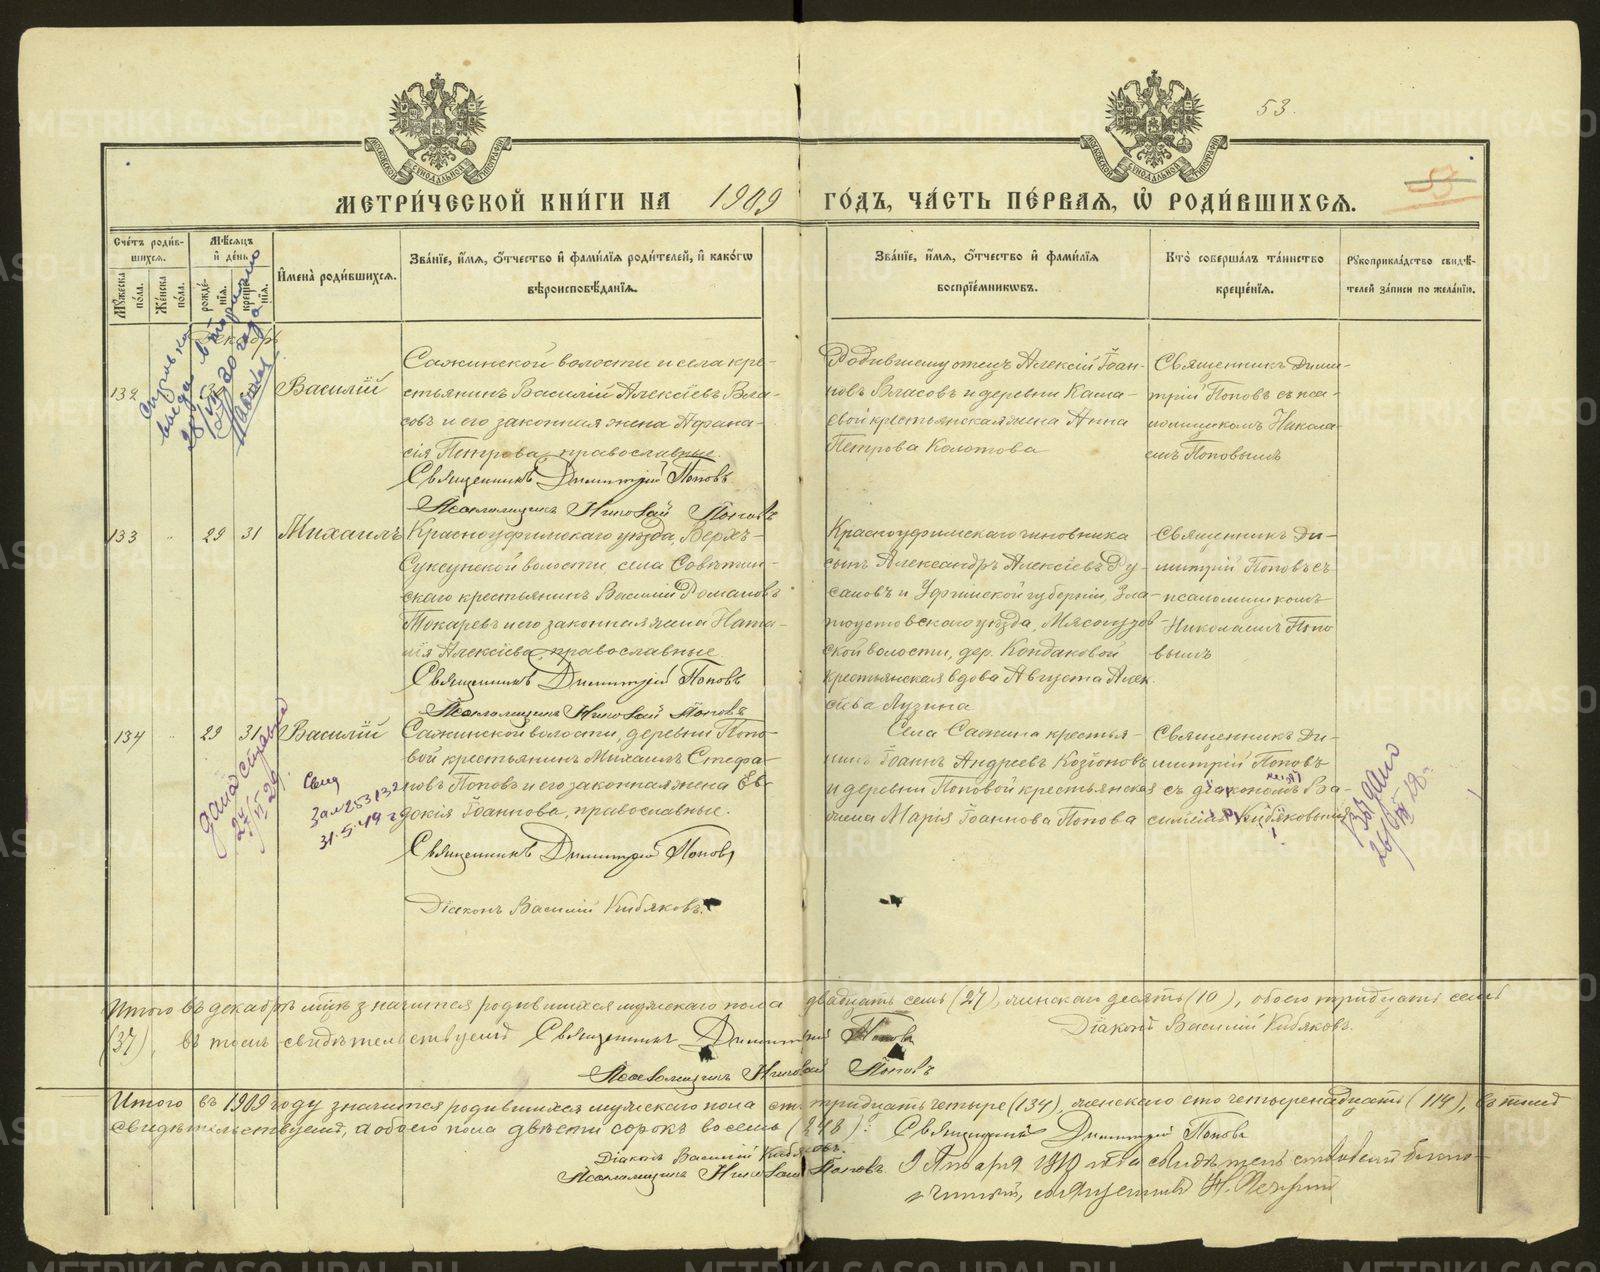 53.
53
МЕТРИ́ЧЕСКОЙ КНИ́ГИ НА 1909 ГО́ДЪ, ЧА́СТЬ ПЕ́РВАЯ, Ѡ҆ РОДИ́ВШИХСЯ.
Сче́тъ роди́в-
шихся.
Му́жеска по́ла.
Же́нска по́ла.
Мѣ́сяцъ
и҆ де́нь
рожде́-
нїя.
креще́-
нїя.
И҆мена̀ роди́вшихся.
Зва́нїе, и҆́мя, ѻ҆́тчество и҆ фами́лїя роди́телей, и҆ како́гѡ
вѣроисповѣ́данїя.
Зва́нїе, и҆́мя, ѻ҆́тчество и҆ фами́лїя
воспрїе́мникѡвъ.
Кто̀ соверша́лъ та́инство
креще́нїя.
Рꙋкоприкла́дство свидѣ́-
телей за́писи по жела́нїю.
Декабрь
132
Василій
Сажинской волости и села кре-
стьянинъ Василій Алексѣевъ Вла-
совъ и его законная жена Афана-
сія Петрова, православные.
Священникъ Димитрій Поповъ
Псаломщикъ Николай Поповъ
Родившему отецъ Алексій Іоан-
новъ Власовъ и деревни Каша-
евой крестьянская жена Анна
Петрова Колотова
Священникъ Дими-
трій Поповъ съ пса-
ломщикомъ Никола-
емъ Поповымъ
133 " 29 31 Михаилъ
Красноуфимскаго уѣзда, Верхъ-
Суксунской волости села Совѣтин-
скаго крестьянинъ Василій Романовъ
Токаревъ и его законная жена Ната-
лія Алексѣева, православные
Священникъ Димитрій Поповъ
Псаломщикъ Николай Поповъ
Красноуфимскаго чиновника
сынъ Александръ Алексѣевъ Ру-
сановъ и Уфимской губерніи, Зла-
тоустовскаго уѣзда, Мясогутов-
ской волости, дер. Кондаковой
крестьянская вдова Августа Алек-
сѣева Лузина
Священникъ Ди-
митрій Поповъ съ
псаломщикомъ
Николаемъ Попо
вымъ
134 " 29 31 Василій
Сажинской волости, деревни Попо-
вой крестьянинъ Михаилъ Стефа-
новъ Поповъ и его законная жена Ев-
докія Іоаннова, православные.
Священникъ Димитрій Поповъ
Діаконъ Василій Кибяковъ.
Села Сажина крестья-
нинъ Іоаннъ Андреевъ Козіоновъ
и деревни Поповой крестьянская
жена Марія Іоаннова Попова
Священникъ Ди-
митрій Поповъ
съ діакономъ Ва-
силіемъ Кибяковымъ
Свид
За № 253132
31-5-49 г
Выдано
Итого въ декабрѣ мѣсяцѣ значится родившихся мужскаго пола двадцать семь (27), женскаго десять (10), обоего тридцать семь
(37), въ томъ свидѣтельствуемъ Священникъ Димитрій Поповъ
Діаконъ Василій Кибяковъ.
Псаломщикъ Николай Поповъ
Итого въ 1909 году значится родившихся мужскаго пола сто тридцать четыре (134), женскаго сто четырнадцать (114), въ томъ
свидѣтельствуемъ, а обоего пола двѣсти сорокъ восемь (248). Священникъ Димитрій Поповъ
Діаконъ Василій Кибяковъ.
Псаломщикъ Николай Поповъ
9 Января 1910 года свидѣтельствовалъ благо-
чинный, священникъ Н.